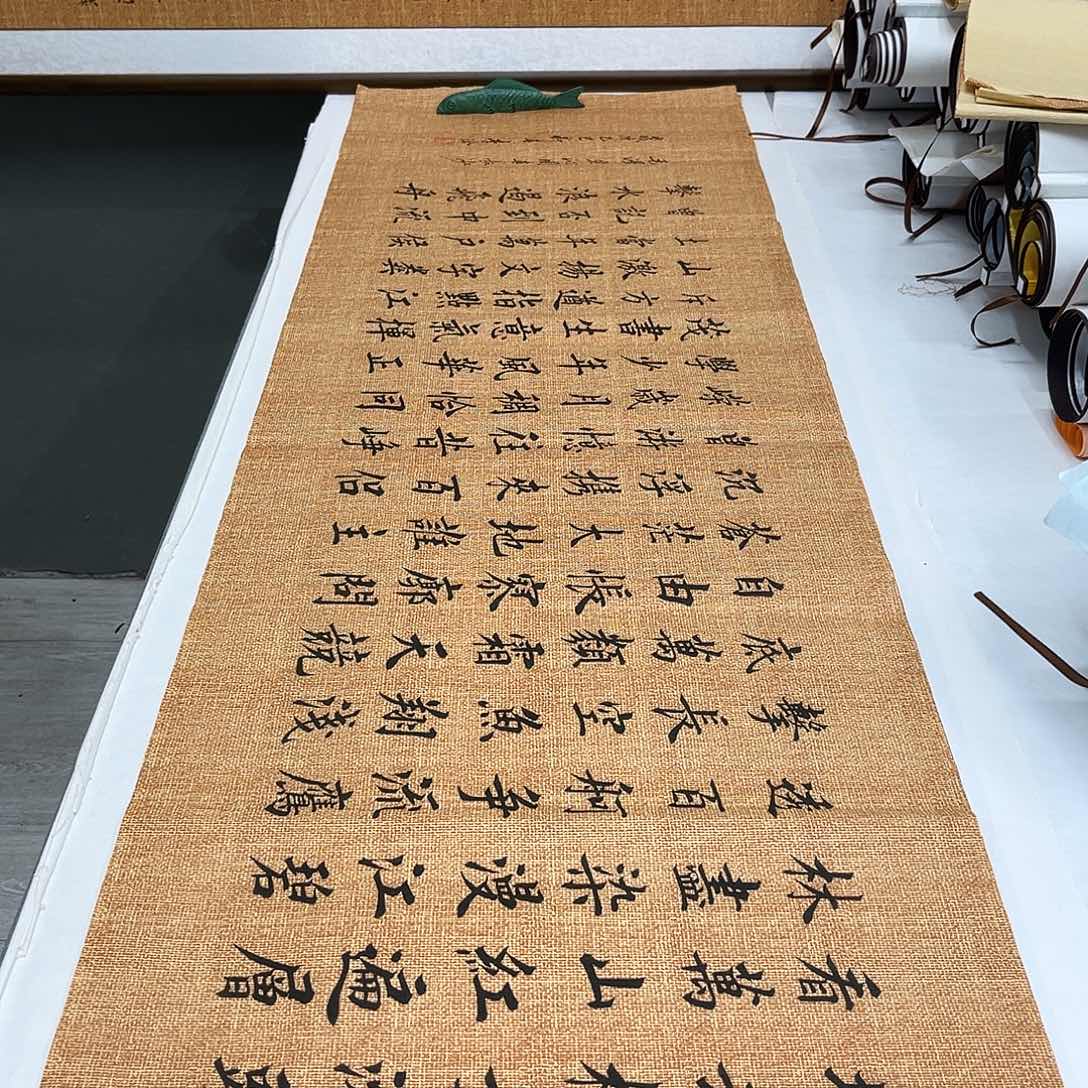 看萬山紅遍層
林盡染漫江碧
透百舸爭流鷹
擊長空魚翔淺
底萬類霜天競
自由悵寥廓問
蒼茫大地誰主
沉浮攜來百侶
曾游憶往昔崢
嶸歲月稠恰同
學少年風華正
茂書生意氣揮
斥方遒指點江
山激揚文字糞
土當年萬戶侯
曾記否到中流
擊水浪遏飛舟